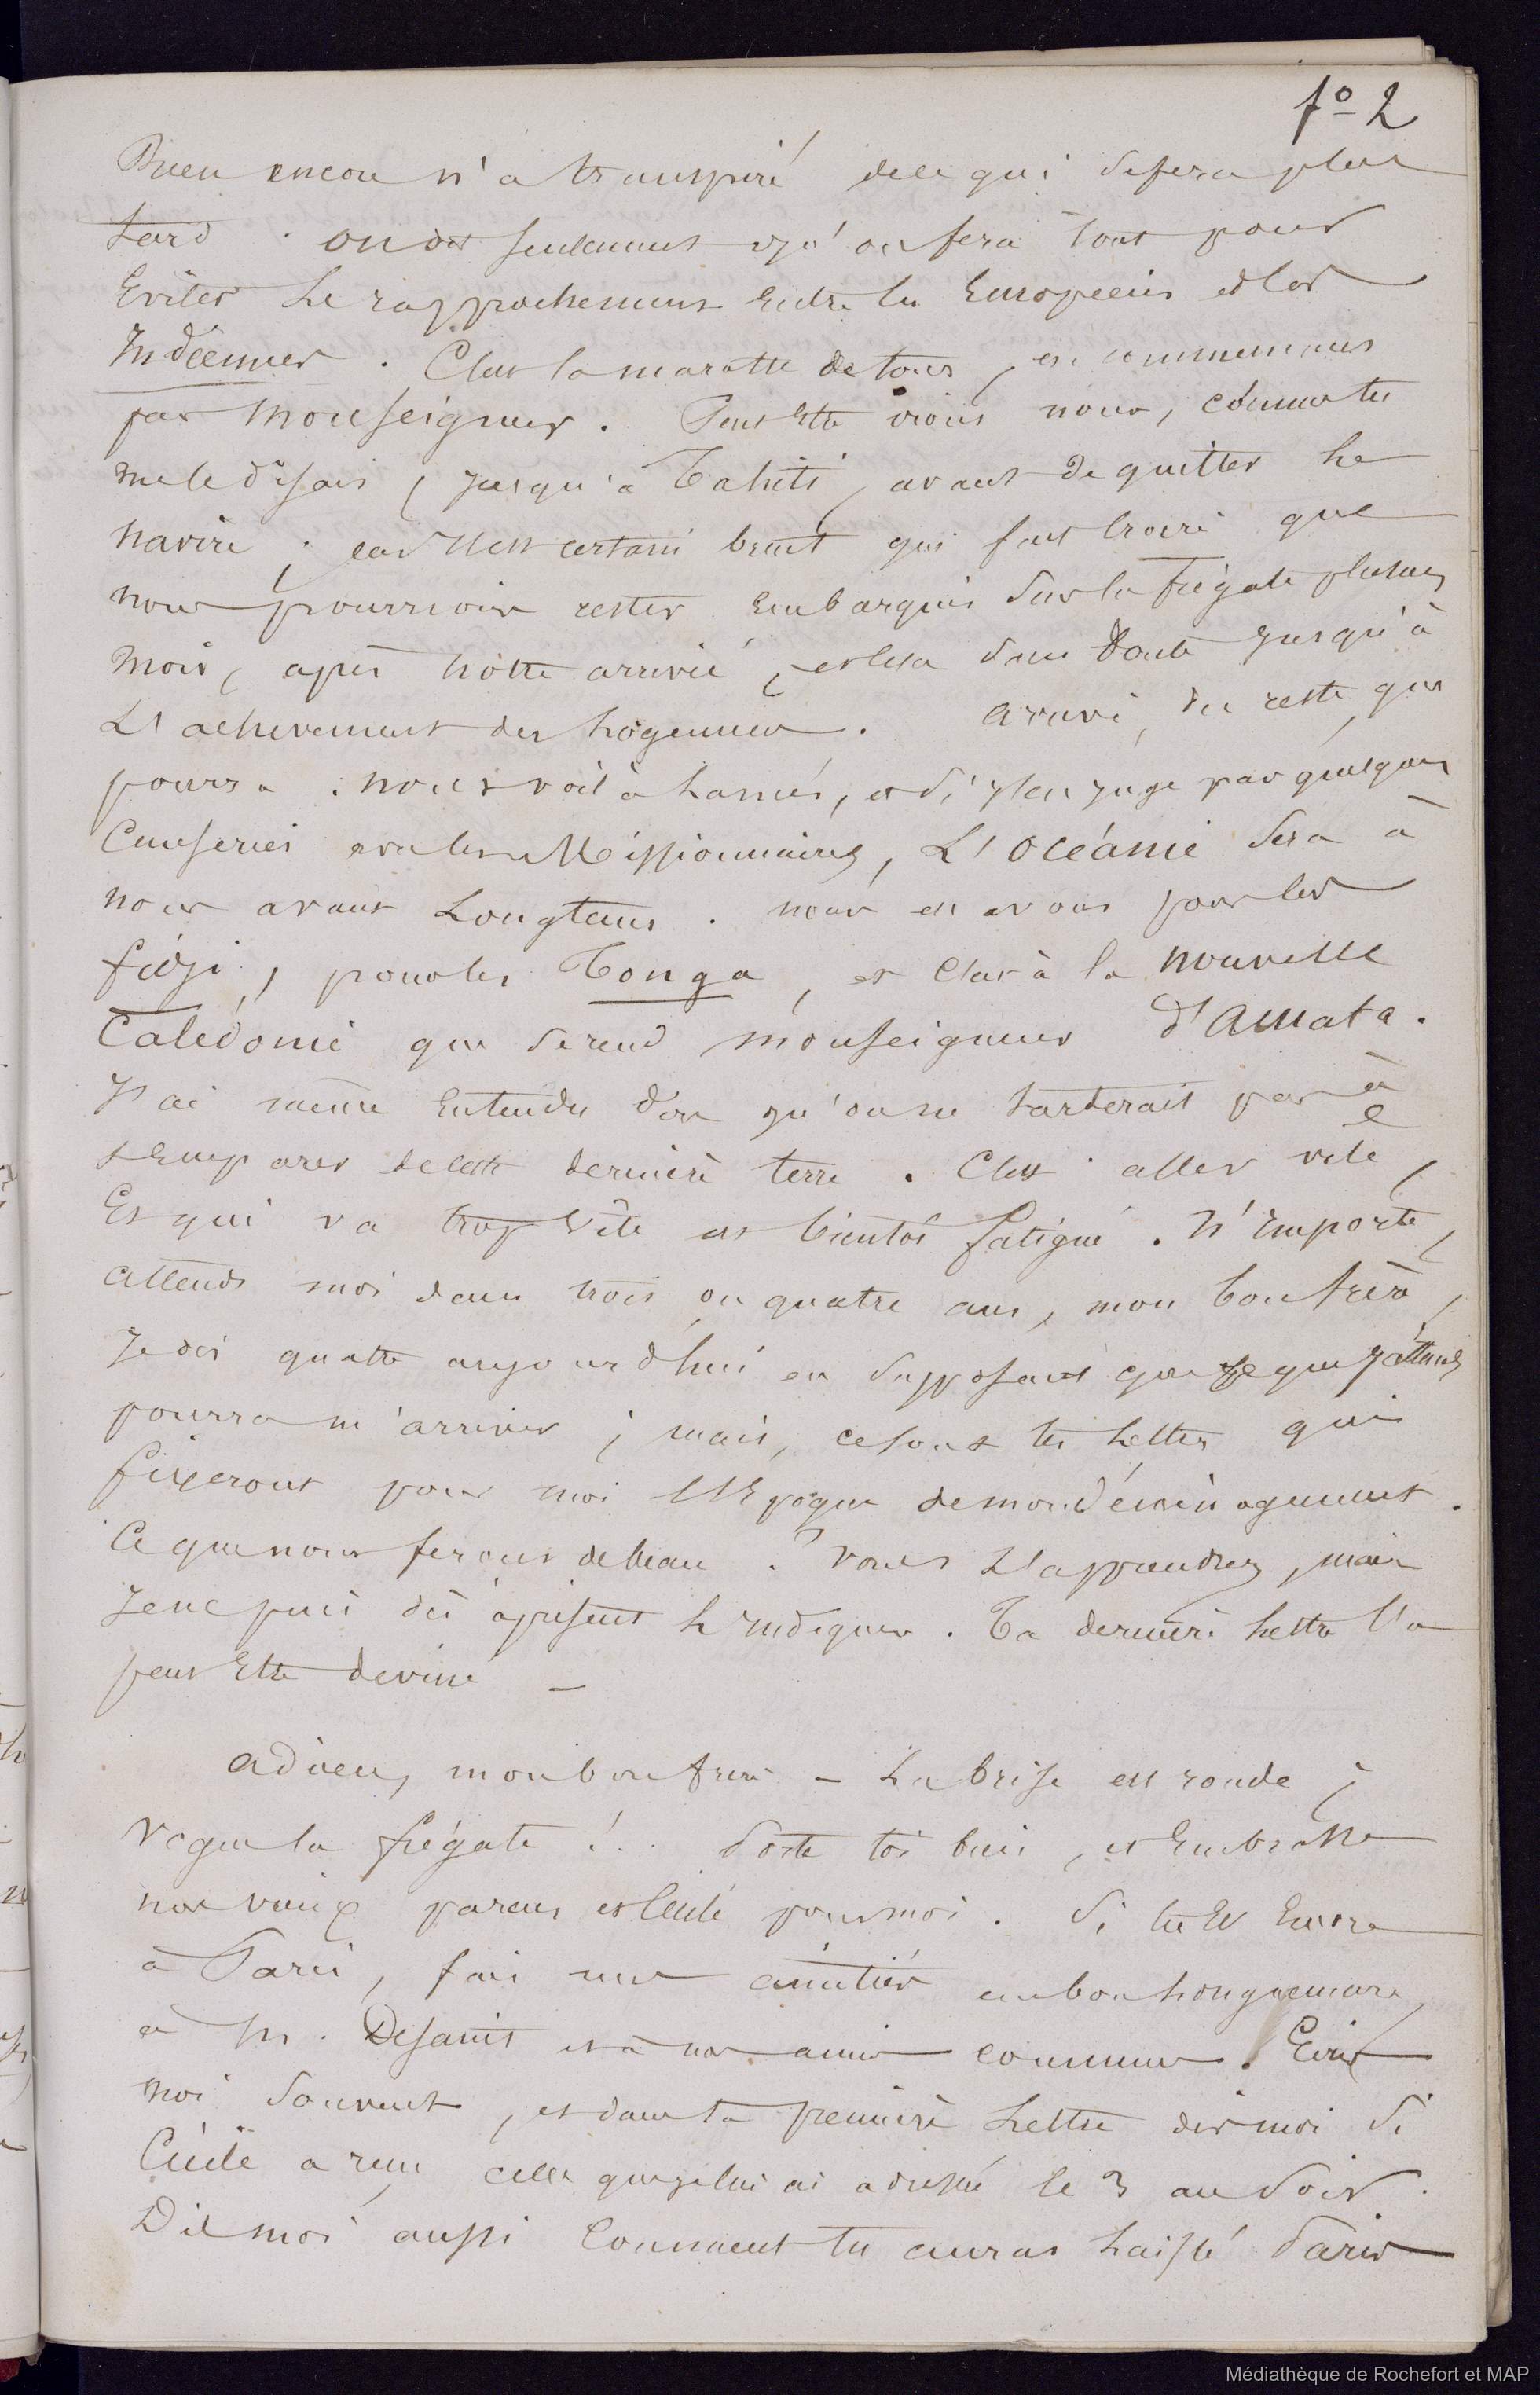 fo 2
Rien encore n'a transpiré de ce qui se fera plus
tard . on dit seulement qu'on fera tout pour
Eviter Le rapprochement Entre les Européens et les
Indiennes . C'est la marotte de tous , en commençant
par Monseigneur . Peut Etre irons nous, comme tu
me le disais , jusqu'à Tahiti , avant de quitter Le
navire ; car Il est certain bruit qui fait croire que
nous pourrions rester Embarqués sur la frégate plusieurs
Mois, après nôtre arrivée , et cela sans doute jusqu'à
L'achevement des Logemens . Arrive, du reste que
pourra : nous voilà Lancés, et si j'en juge par quelques
Causeries avec les Missionnaires, L'Océanie sera à
nous avant Longtems . nous en avons pour les
fidji , pour les Tonga , et c'est à la nouvelle
Calédonie que se rend monseigneur d'Amata .
J'ai même Entendu dire qu'on ne tarderait pas à
s'Emparer de cette dernière terre . C'est aller vite ,
Et qui va trop vite est bientôt fatigué . N'Importe,
attends moi dans trois ou quatre ans, mon bon frère ,
Je dis quatre aujourd'hui en supposant que ce que j'attends
pourra m'arriver ; mais, ce sont tes Lettres qui
fixeront pour moi l'Epoque de mon déménagement .
Ce que nous ferons de beau . Vous L'apprendrez , mais
Je ne puis dès àprésent L'Indiquer . Ta dernière Lettre l'a
peut Etre deviné —
adieu, mon bon frère – La brise est ronde ;
vogue la frégate ! . Porte toi bien , et Embrasse
nos vieux parens et Cécile pour moi . Si tu Es Encore
à Paris , fais mes amitiés au bon
à M. Desanit et à nos amis communs . Ecris
moi souvent , et dans ta première Lettre dis moi si
Cécile a reçu celle que je lui ai adressée le 3 au soir .
Dis moi aussi Comment tu auras Laissé Paris
Médiathèque de Rochefort et MAP